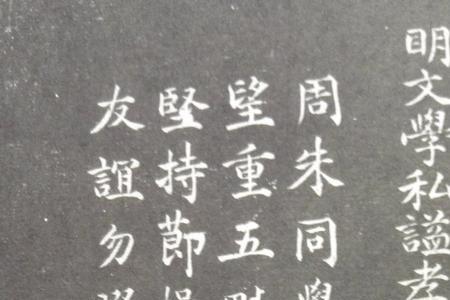 明文學私謚孝
周朱同學
望重五
堅持節
友誼勿